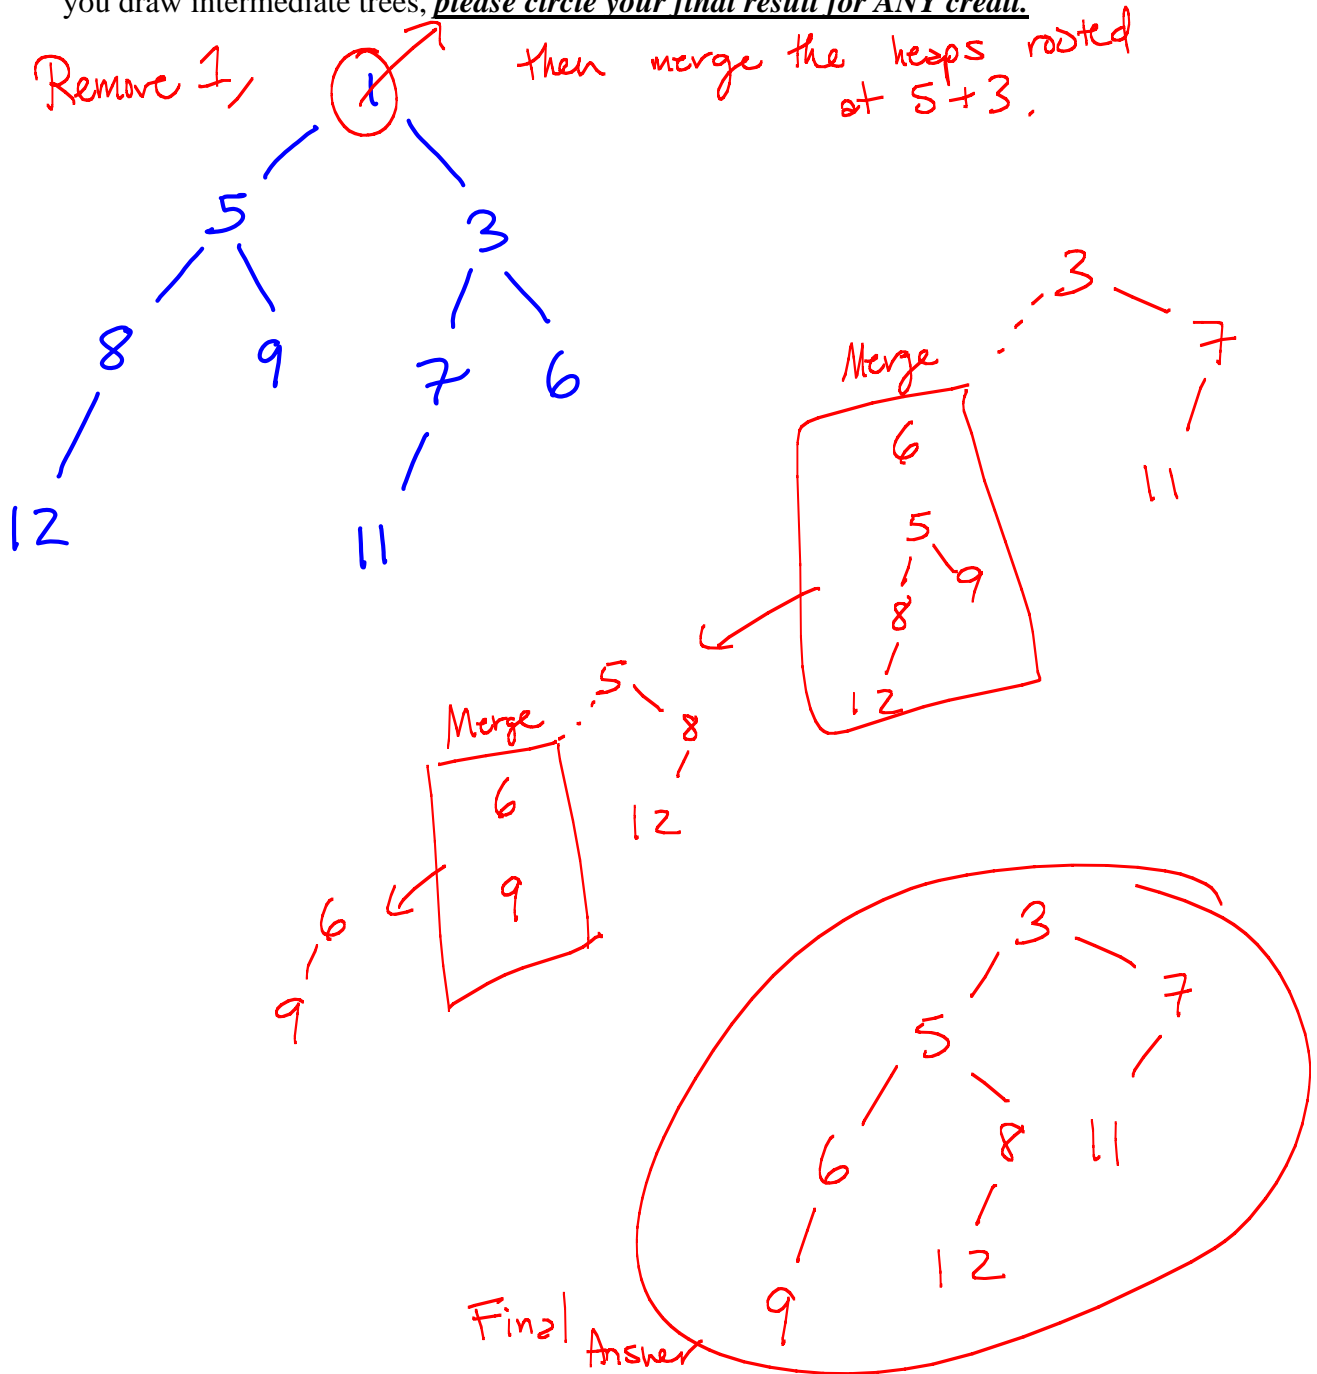 you draw intermediate trees, please circle your final result for ANY credit.
Remove 1, then merge the heaps rooted
at 5+3.
1
5 3
8 9 7 6
12 11
3
7
Merge
6
11
5
9
8
12
5
Merge 8
6
12
9
6
9
3
7
5
6 8 11
12
9
Final Answer